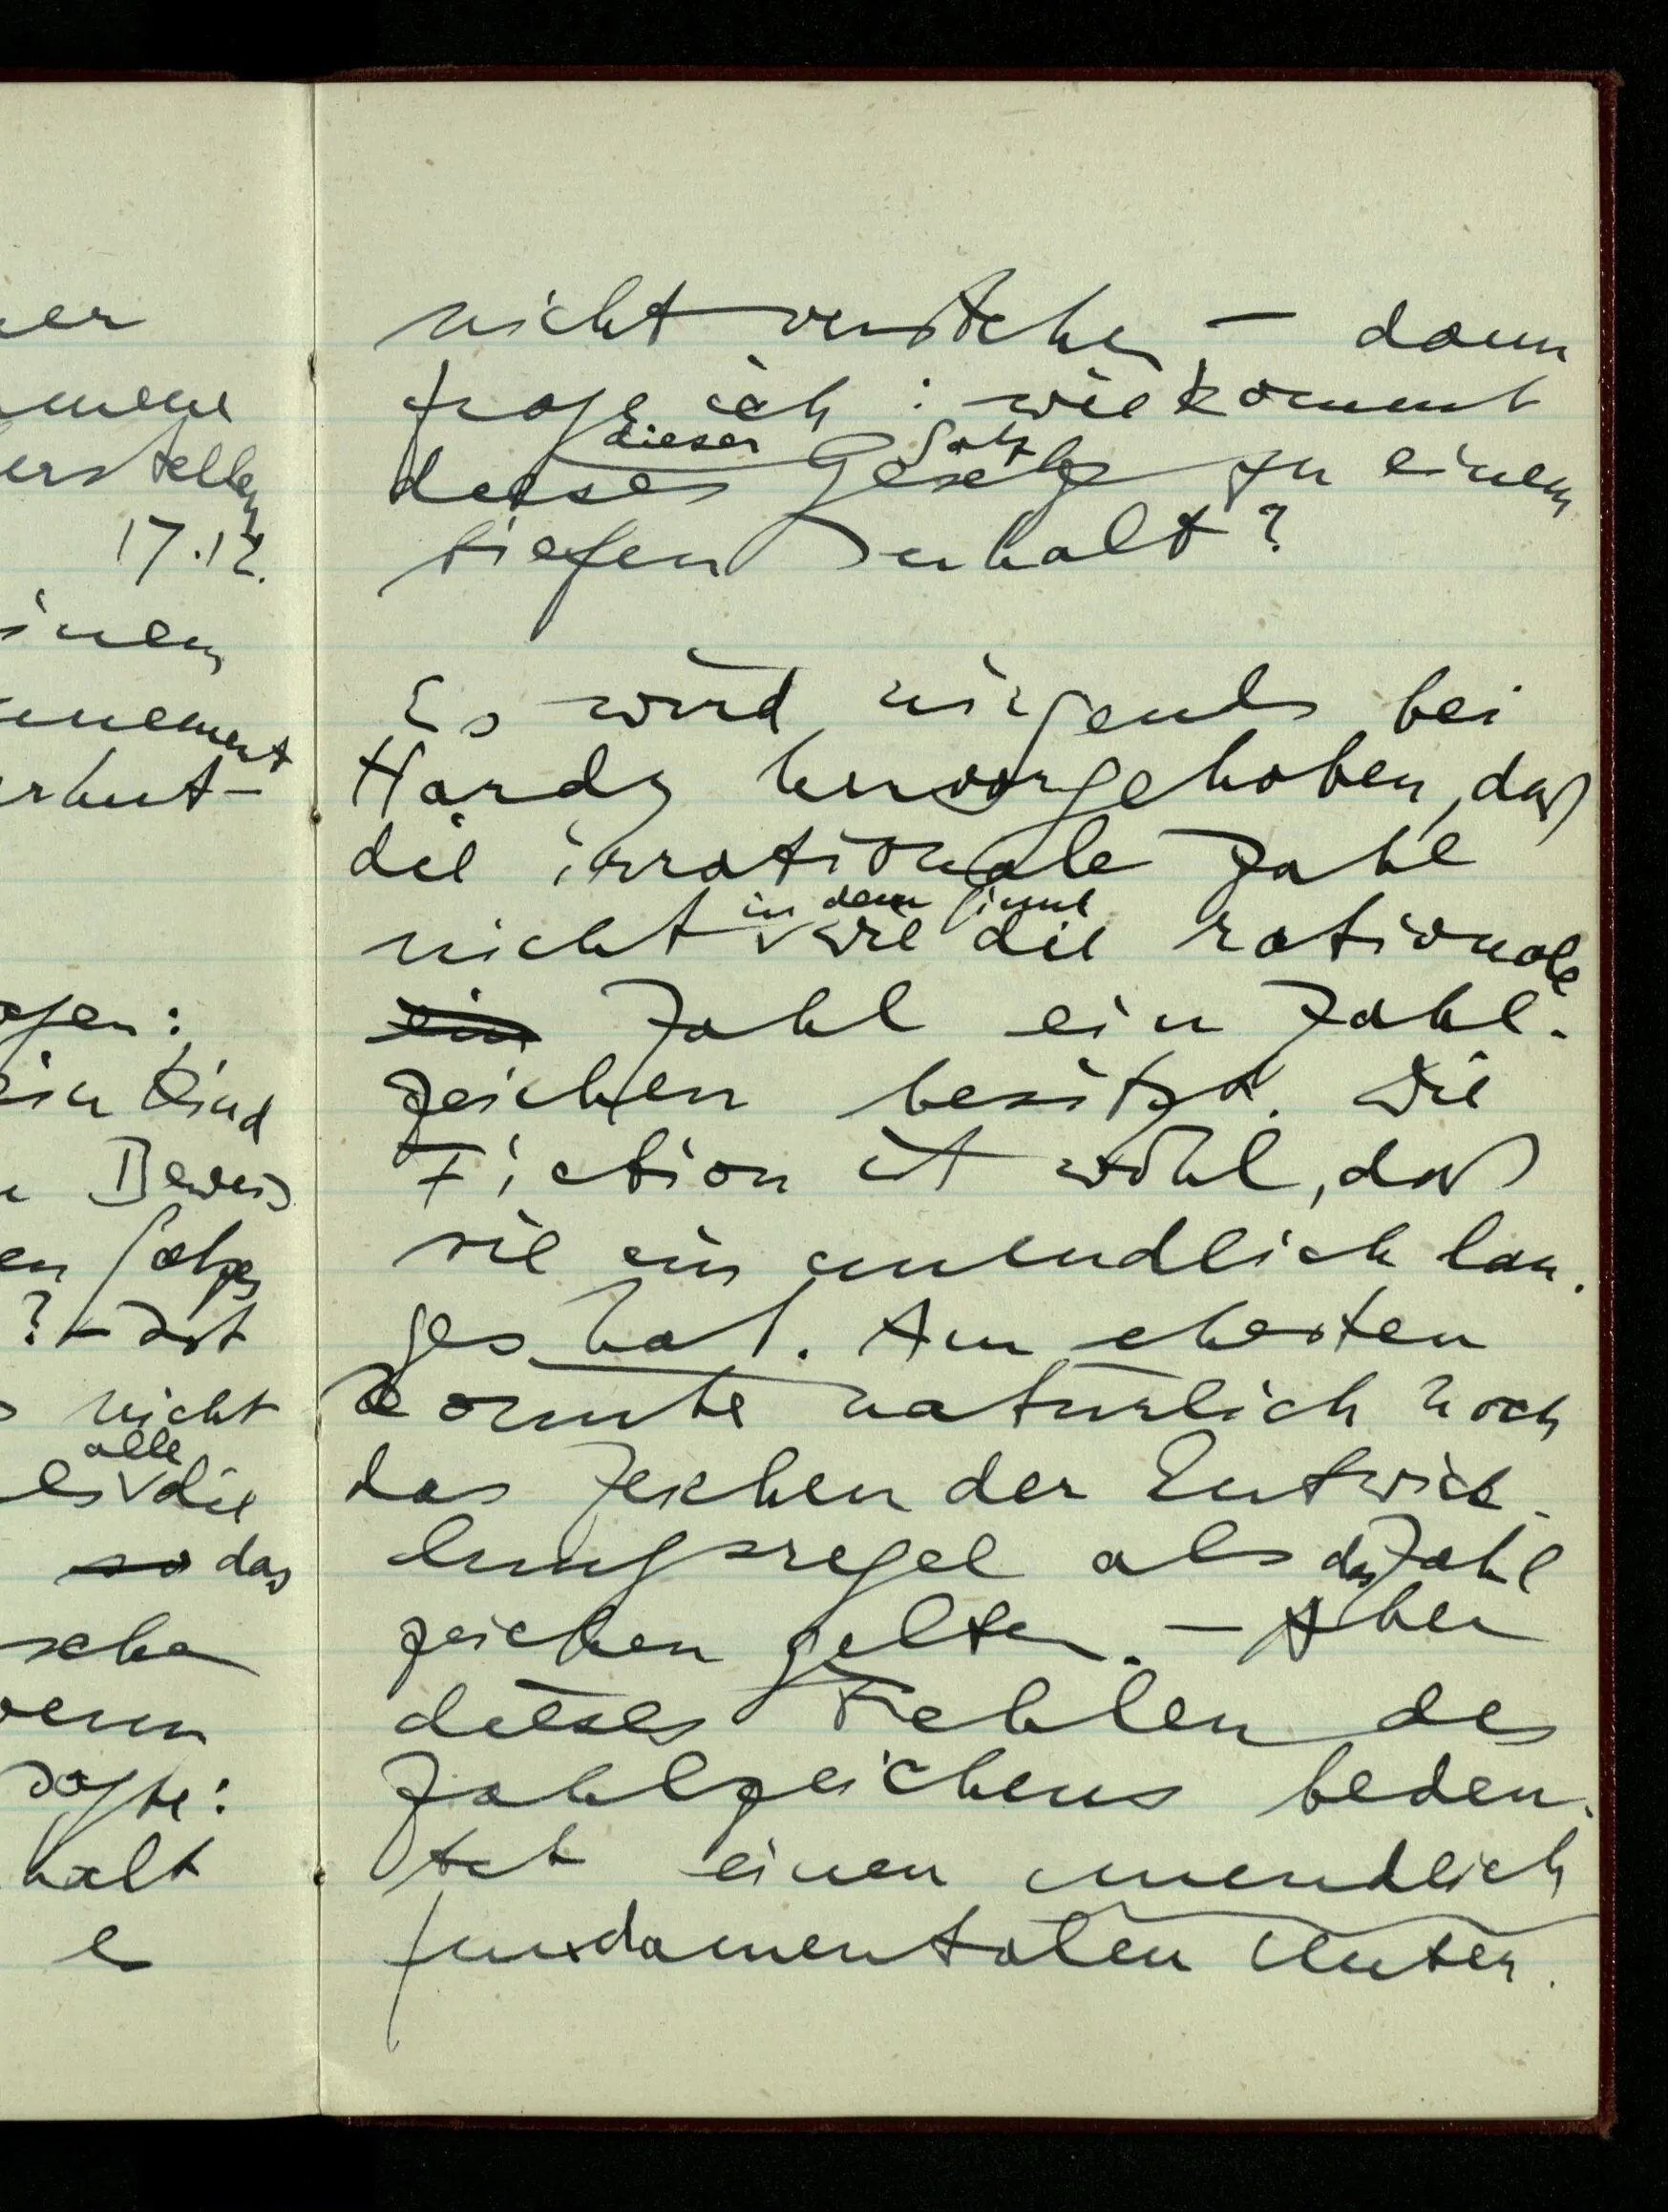 er
mene
erstellen
17.12.
inem
nnement
rhut-
agen:
ein Kind
n Beweis
en Satzes
? – Ist
s nicht
alle
es die
so das
sche
wenn
sagte:
halt
es
nicht verstehe – dann
frage ich: wie kommt
dieser Satz
dieses Gesetz zu einem
tiefen Inhalt?
Es wird nirgends bei
Hardy hervorgehoben, daß
die irrationale Zahl
in dem Sinne
nicht wie die rationale
ein Zahl ein Zahl-
zeichen besitzt. Die
Fiction ist wohl, daß
sie ein unendlich lan-
ges hat. Am ehesten
könnte natürlich noch
das Zeichen der Entwick-
lungsregel als das Zahl
zeichen gelten. – Aber
dieses Fehlen des
Zahlzeichens bedeu-
tet einen unendlich
fundamentalen Unter-